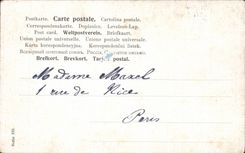 Postkarte. Carte postale. Cartolina postale.
Correspondenzkarte. Dopisnice. Levelező-Lap.
Post card. Weltpostverein. Briefkaart.
Union postale universelle. Unione postale universale.
Karta korespondencyjna. Korespondenční lístek.
Всемірный почтовый союз. Россія.
Brefkort. Brevkort. Tarjeta postal.
Madame Maxel
1 rue de Nice
Paris